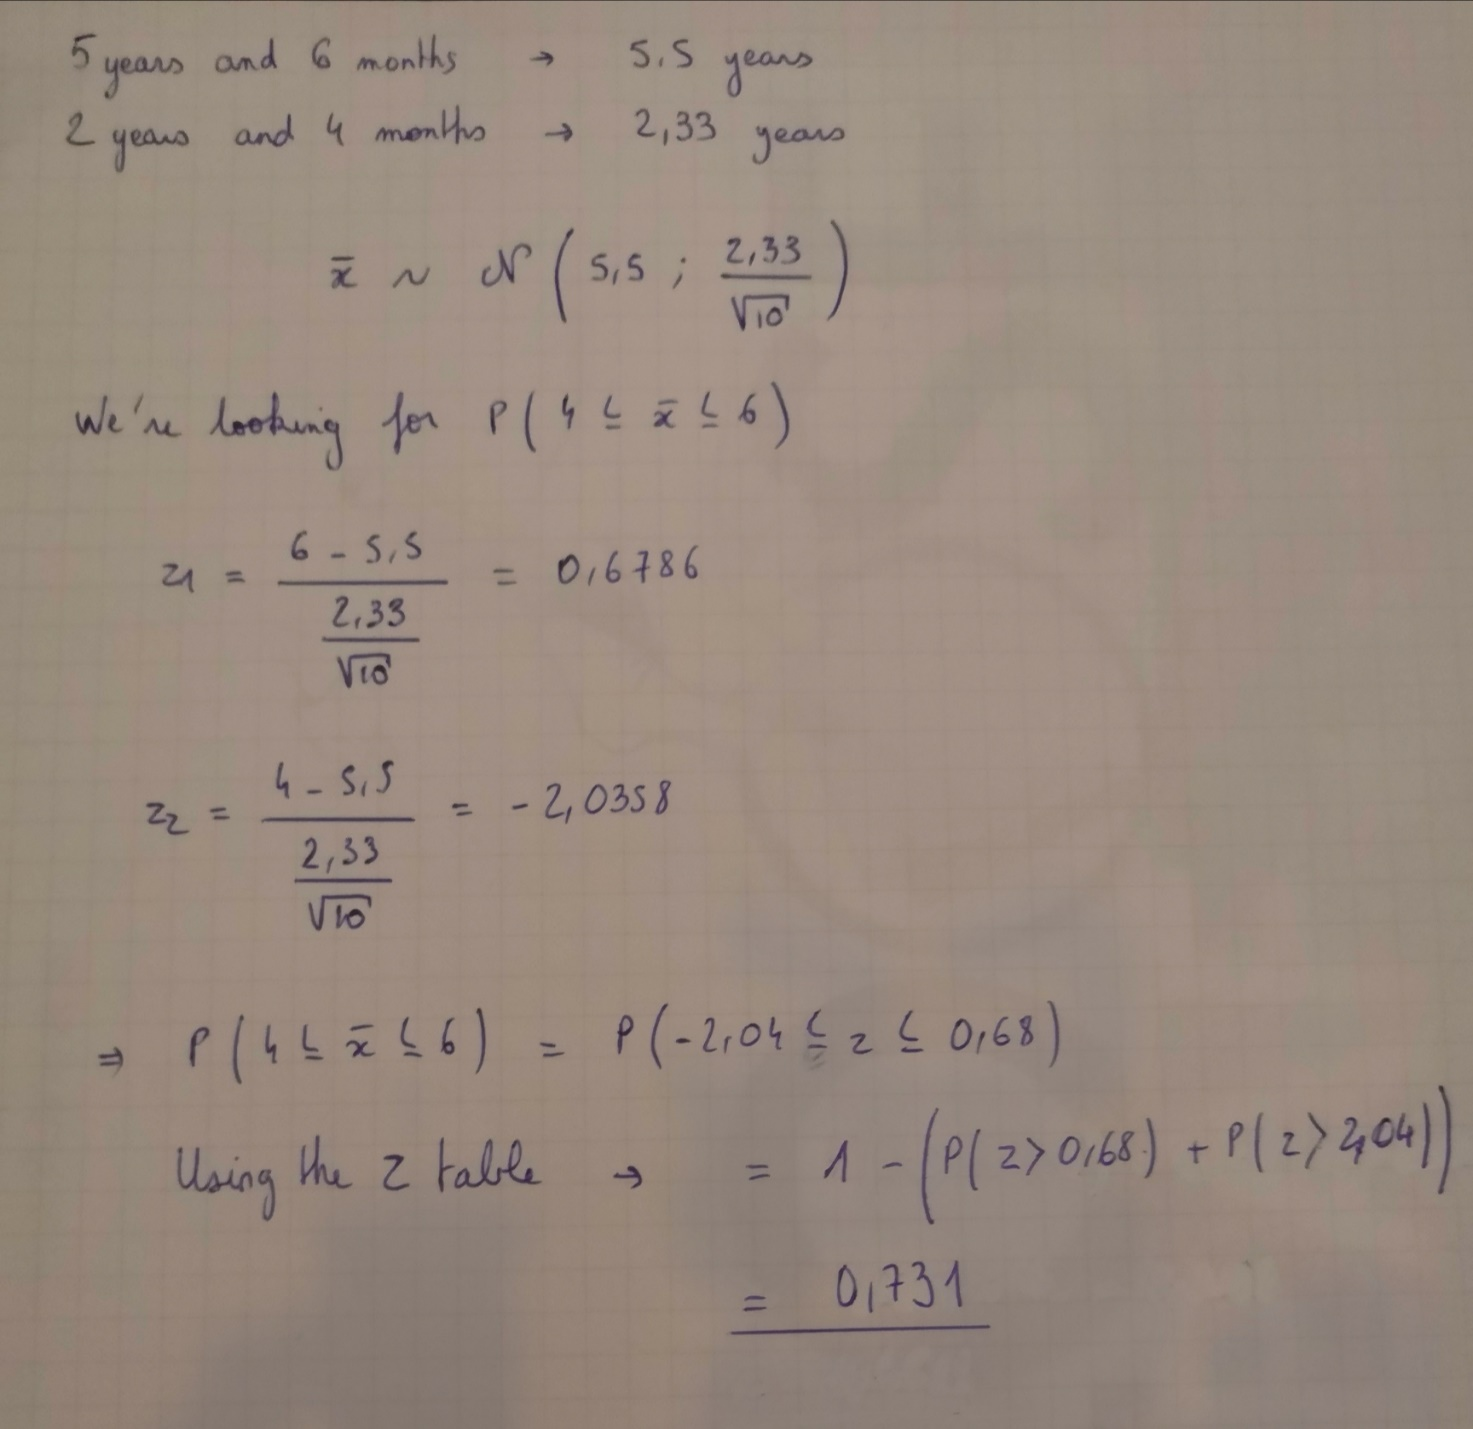 5 years and 6 months → 5,5 years
2 years and 4 months → 2,33 years
x̄ ~ N ( 5,5 ; 2,33 / √10 )
We're looking for P( 4 ≤ x̄ ≤ 6 )
z1 = (6 - 5,5) / (2,33 / √10) = 0,6786
z2 = (4 - 5,5) / (2,33 / √10) = -2,0358
⇒ P( 4 ≤ x̄ ≤ 6 ) = P( -2,04 ≤ z ≤ 0,68 )
Using the Z table → = 1 - ( P( z > 0,68 ) + P( z > 2,04 ) )
= 0,731